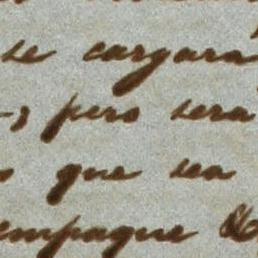 se cargara
-; pero sera
que sea
empaque &